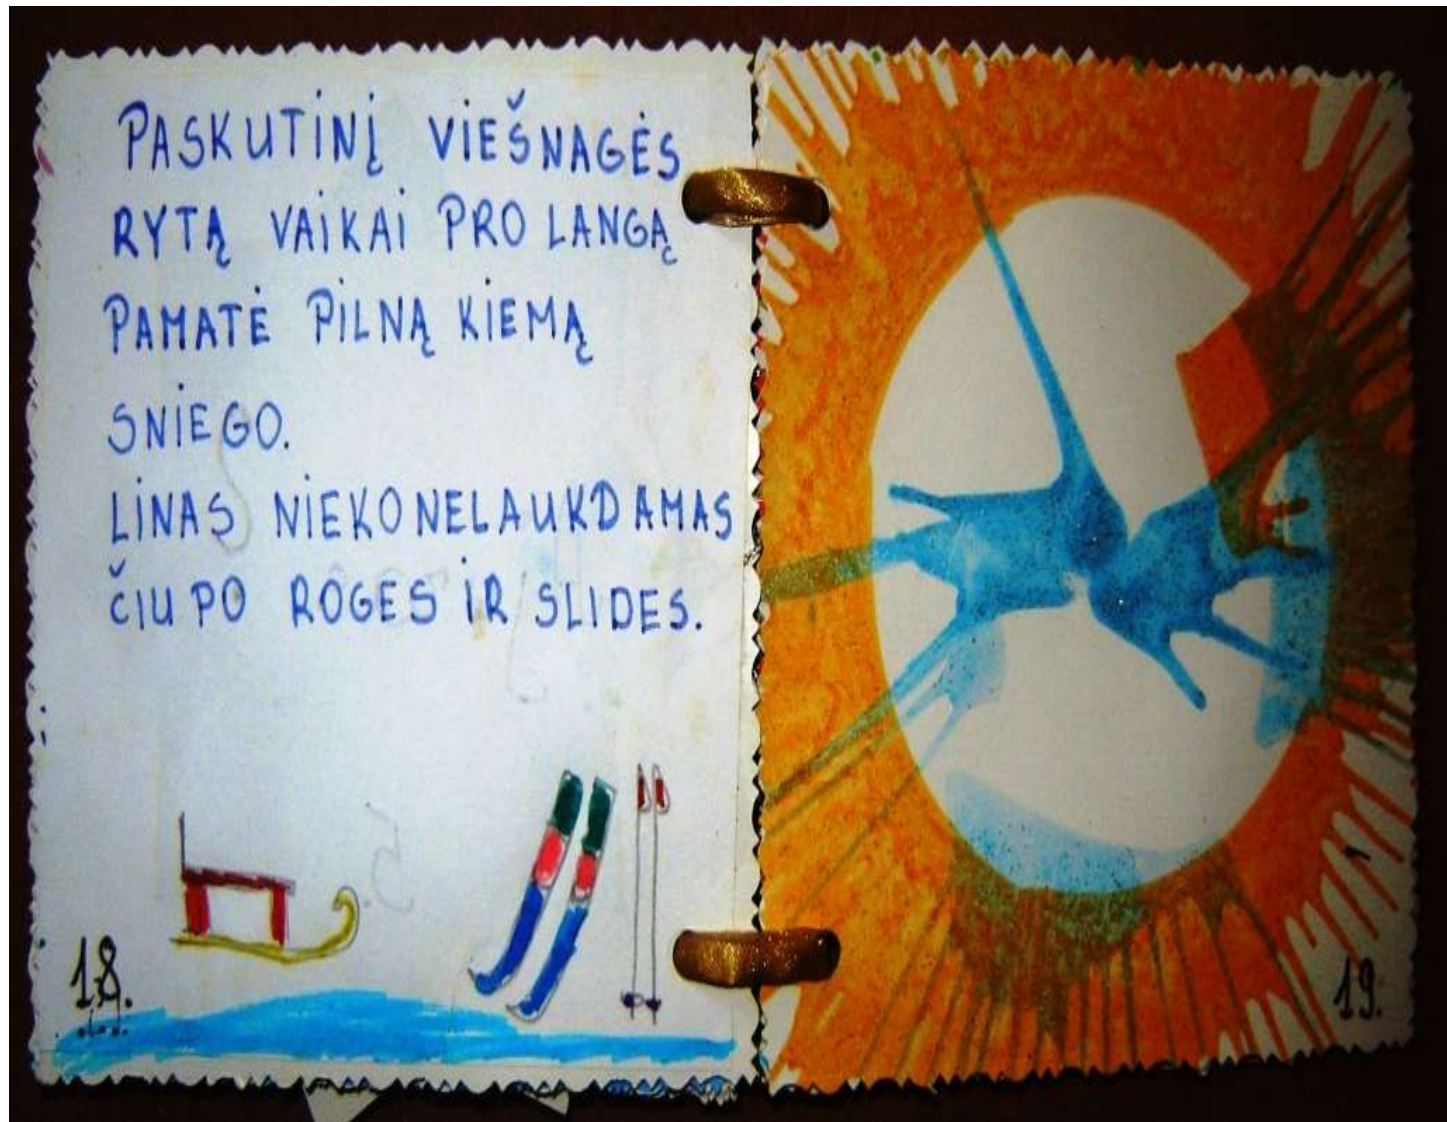 PASKUTINĮ VIEŠNAGĖS
RYTĄ VAIKAI PRO LANGĄ
PAMATĖ PILNĄ KIEMĄ
SNIEGO.
LINAS NIEKO NELAUKDAMAS
ČIUPO ROGES IR SLIDES.
18.
19.